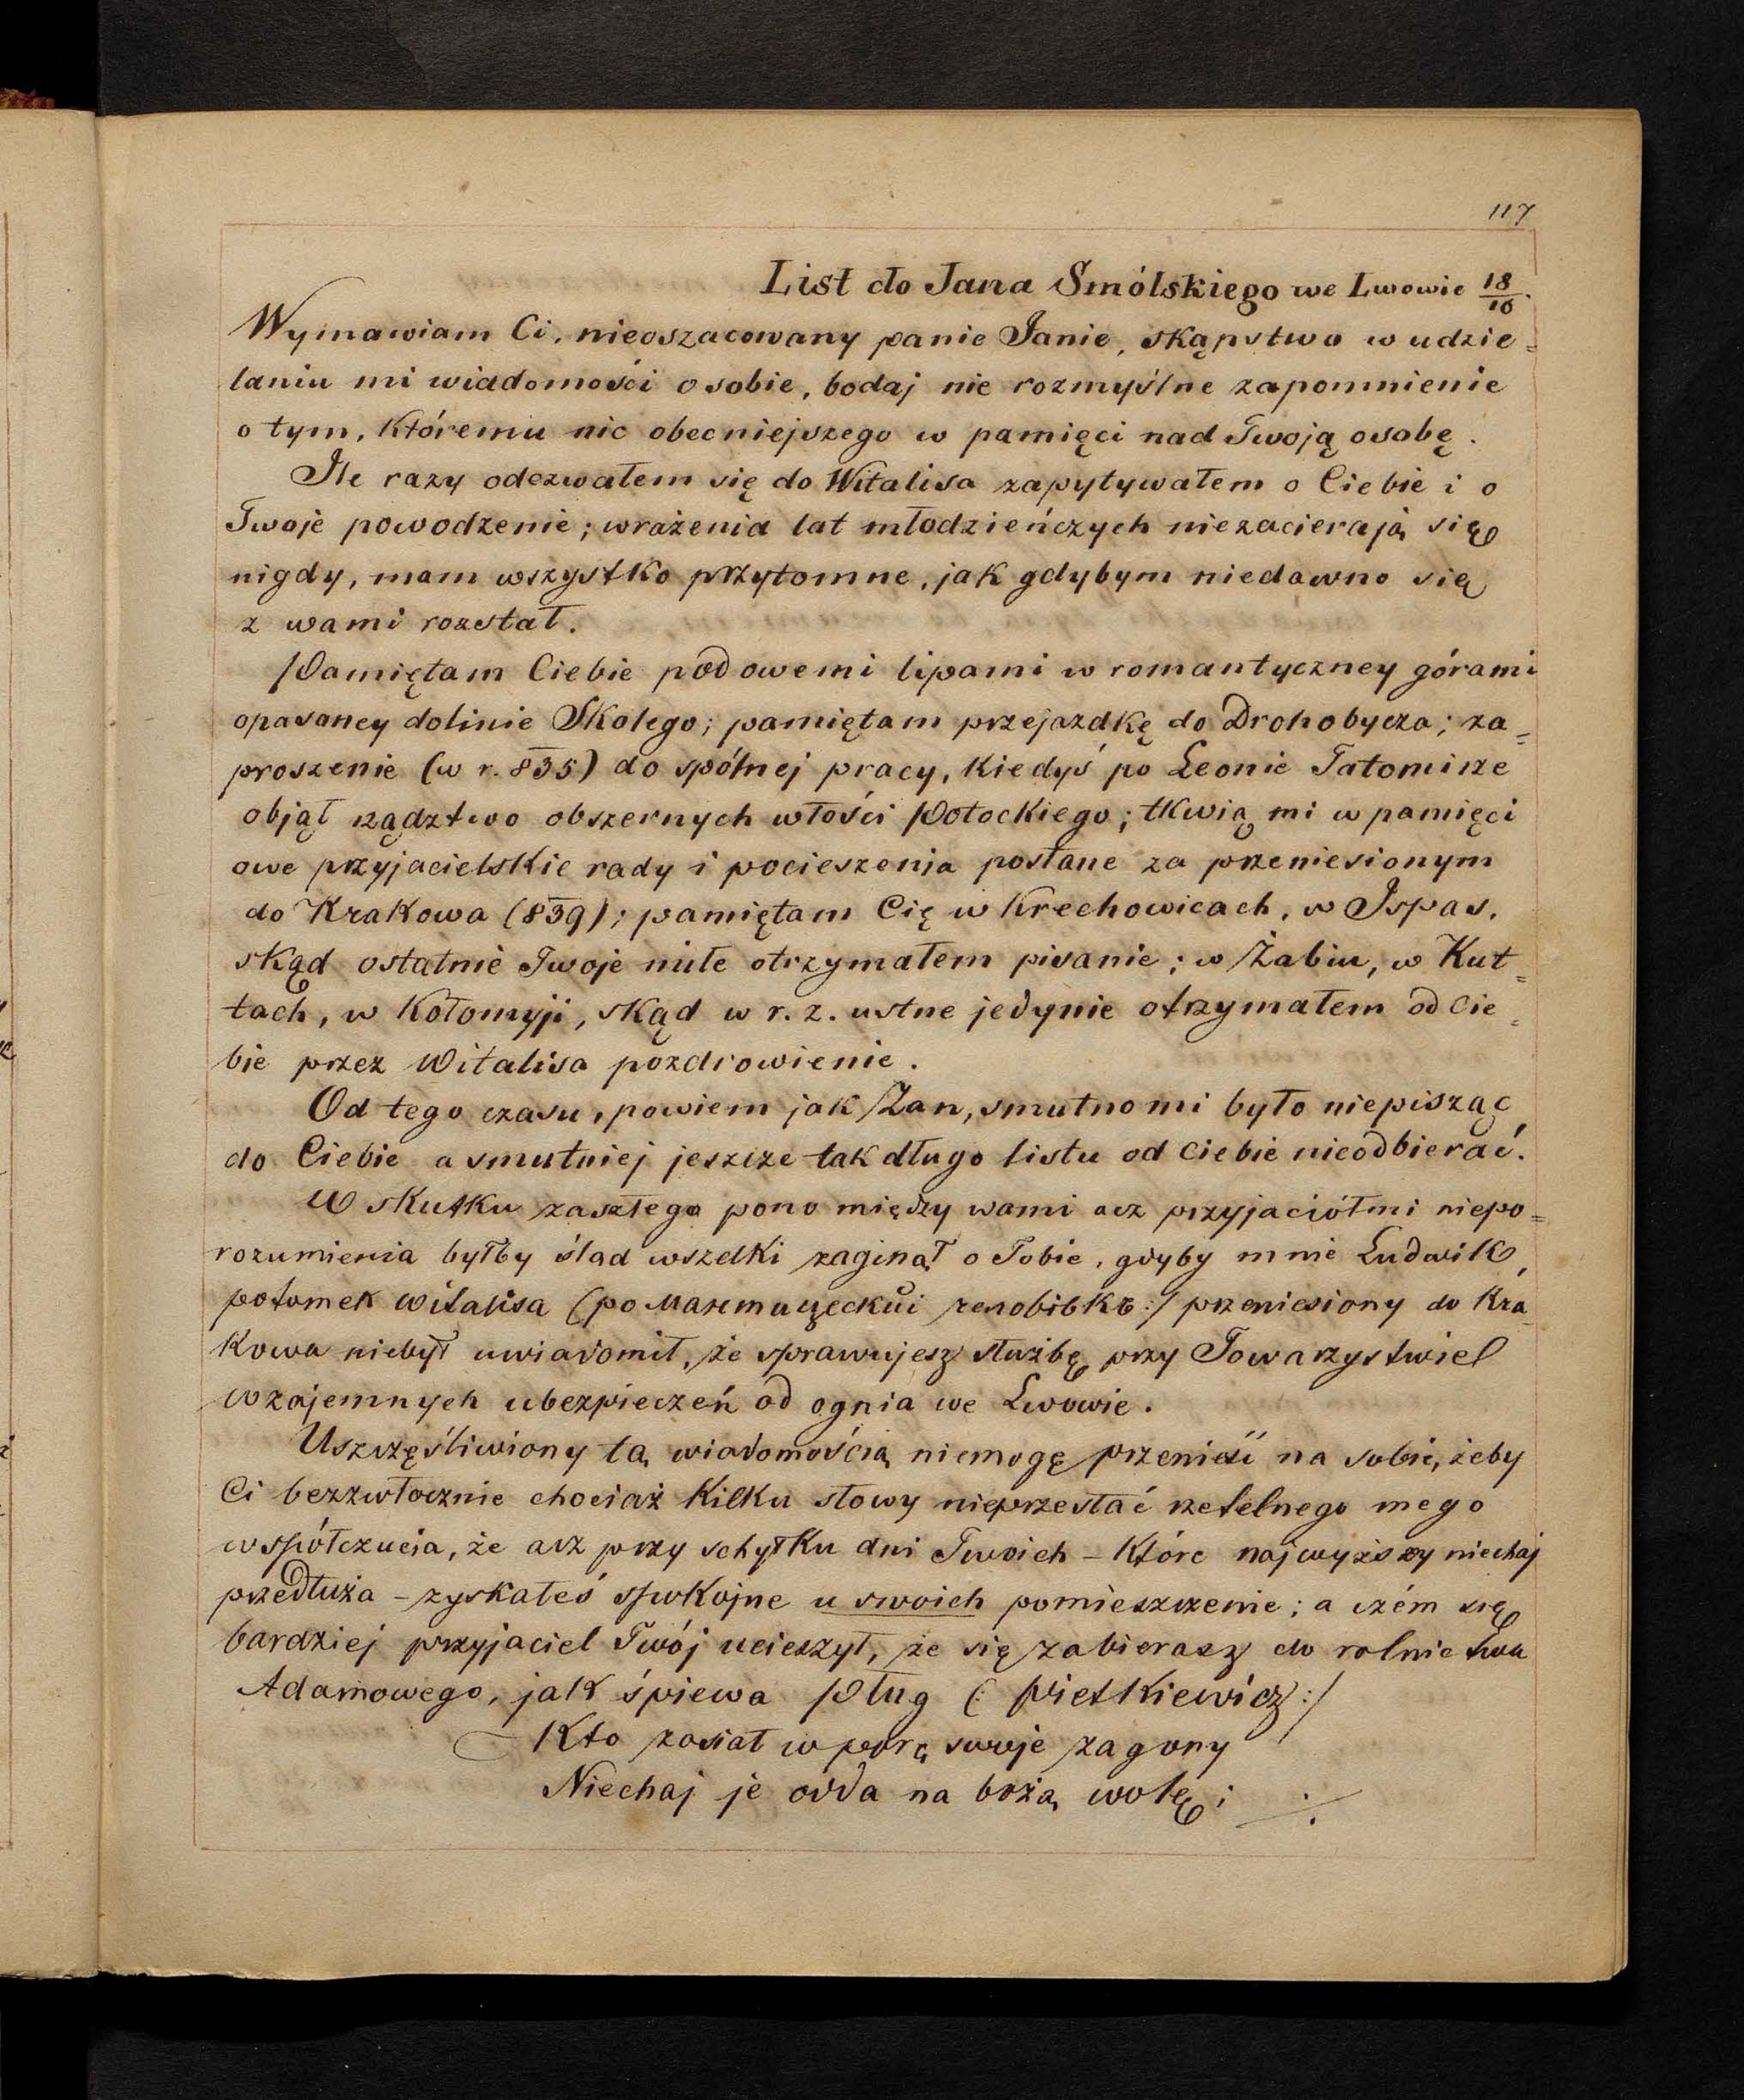 117
List do Jana Smólskiego we Lwowie 18/10.
Wymawiam Ci, nieoszacowany panie Janie, skąpstwo w udzie=
laniu mi wiadomości o sobie, bodaj nie rozmyślne zapomnienie
o tym, któremu nic obecniejszego w pamięci nad Twoją osobę.
Ile razy odezwałem się do Witalisa zapytywałem o Ciebie i o
Twoje powodzenie; wrażenia lat młodzieńczych niezacierają się
nigdy, mam wszystko przytomne, jak gdybym niedawno się
z wami rozstał.
Pamiętam Ciebie pod owemi lipami w romantyczney górami
opasaney dolinie Skolego; pamiętam przejazdkę do Drohobycza; za=
proszenie (w r. 835) do spólnej pracy, kiedyś po Leonie Tatomirze
objął rządztwo obszernych włości Potockiego; tkwią mi w pamięci
owe przyjacielskie rady i pocieszenia posłane za przeniesionym
do Krakowa (839); pamiętam Cię w Krechowicach, w Ispas,
skąd ostatnie Twoje miłe otrzymałem pisanie; w Żabiu, w Kut=
tach, w Kołomyji, skąd w r. z. ustne jedynie otrzymałem od Cie=
bie przez Witalisa pozdrowienie.
Od tego czasu, powiem jak Zan, smutno mi było niepisząc
do Ciebie a smutniej jeszcze tak długo listu od Ciebie nieodbierać.
W skutku zaszłego pono między wami acz przyjaciółmi niepo=
rozumienia byłby ślad wszelki zaginął o Tobie, gdyby mnie Ludwik,
potomek Witalisa (по przeniesiony do Kra=
kowa niebył uwiadomił, że sprawujesz służbę przy Towarzystwie
wzajemnych ubezpieczeń od ognia we Lwowie.
Uszczęśliwiony tą wiadomością niemogę przenieść na sobie, żeby
Ci bezzwłocznie chociaż kilku słowy nieprzesłać rzetelnego mego
współczucia, że acz przy schyłku dni Twoich – które najwyższy niechaj
przedłuża – zyskałeś spokojne u swoich pomieszczenie; a czém się
bardziej przyjaciel Twój ucieszył, że się zabierasz do rolnictwa
Adamowego, jak śpiewa Pług (: Pietkiewicz :/
Kto zasiał w porę swoje zagony
Niechaj je odda na bożą wolę; ./.